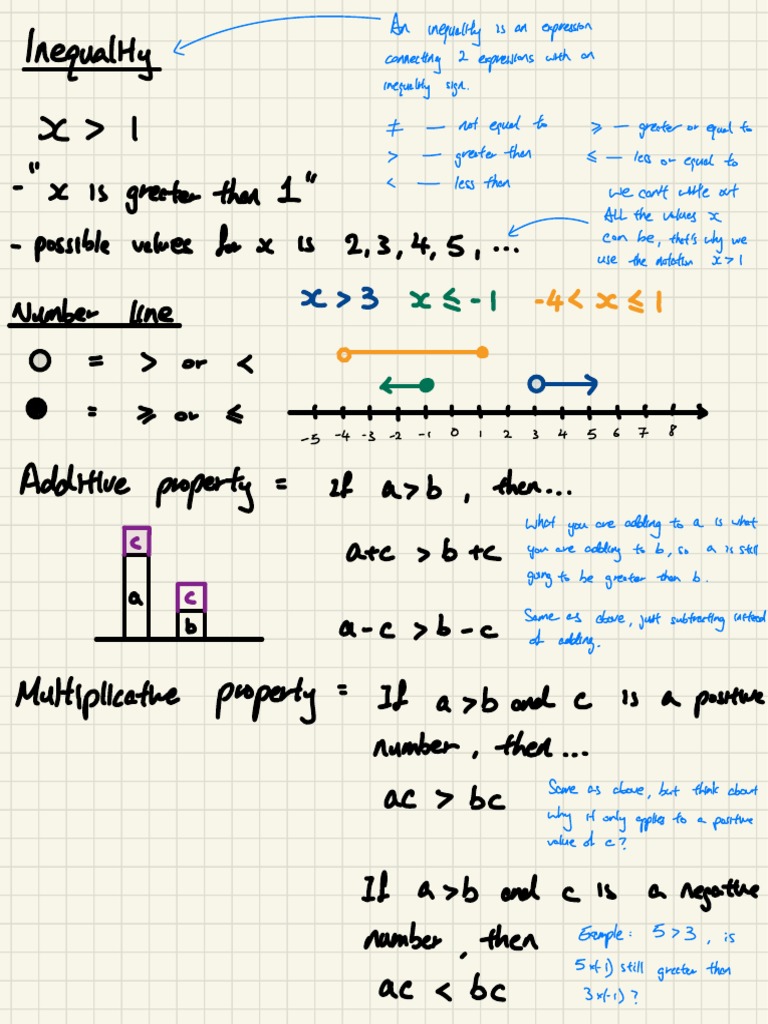 Inequality
An inequality is an expression
connecting 2 expressions with an
inequality sign.
x > 1
≠ — not equal to
> — greater than
< — less than
≥ — greater or equal to
≤ — less or equal to
- "x is greater than 1"
we can't write out
All the values x
can be, that's why we
use the notation x>1
- possible values for x is 2,3,4,5,...
Number line
x > 3 x ≤ -1 -4 < x ≤ 1
○ = > or <
● = ≥ or ≤
-5 -4 -3 -2 -1 0 1 2 3 4 5 6 7 8
Additive property = If a>b, then...
c
a
c
b
a+c > b+c
What you are adding to a is what
you are adding to b, so a is still
going to be greater than b.
a-c > b-c
Same as above, just subtracting instead
of adding.
Multiplicative property = If a>b and c is a positive
number, then...
ac > bc
Same as above, but think about
why it only applies to a positive
value of c?
If a>b and c is a negative
number, then
ac < bc
Example: 5>3, is
5x(-1) still greater than
3x(-1)?